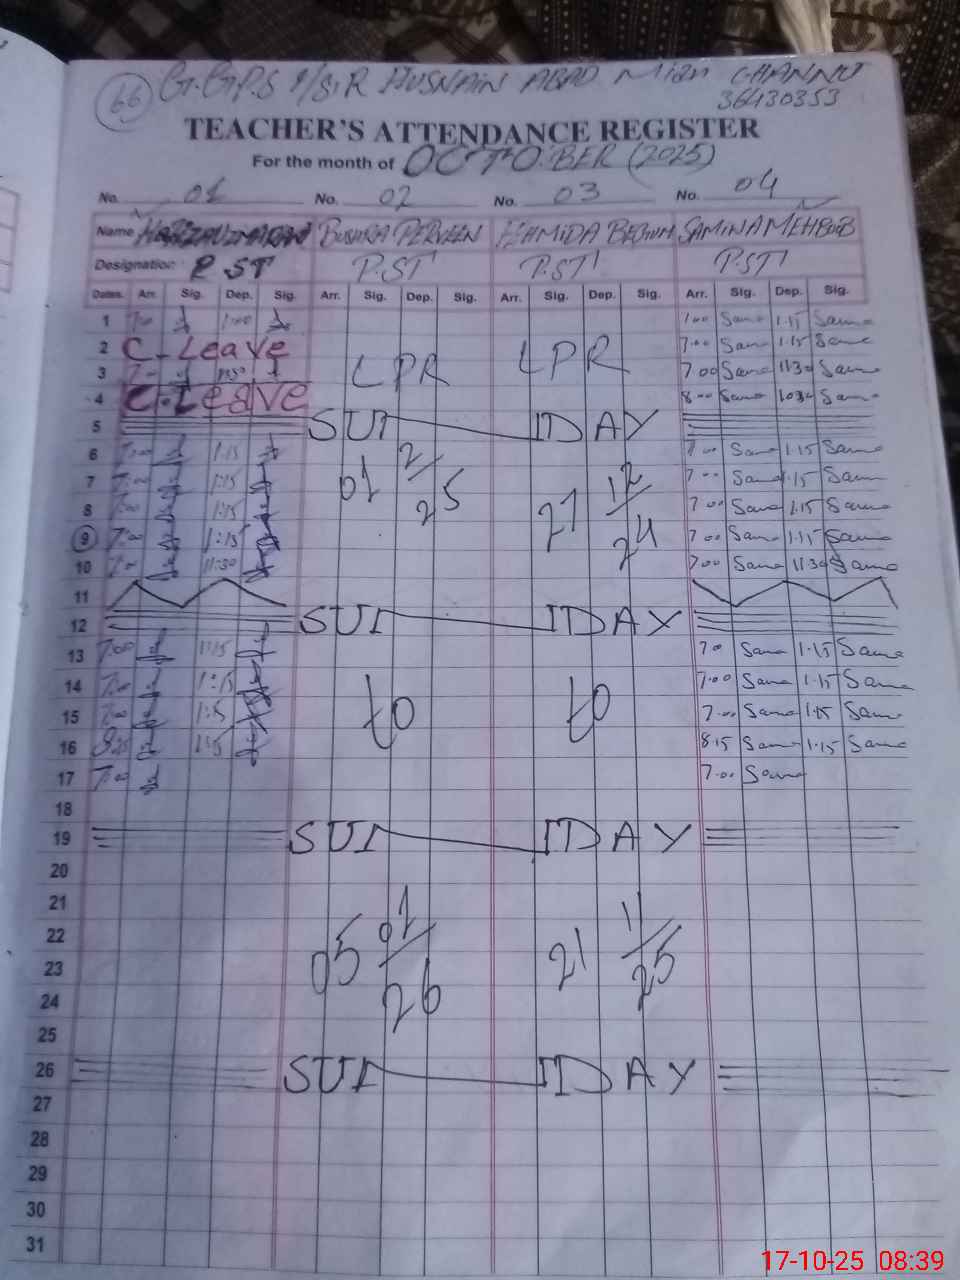 66 G.G.P.S HUSNAIN ABAD Mian CHANNU
36430353
TEACHER'S ATTENDANCE REGISTER
For the month of OCTOBER (2025)
No. 01 No. 02 No. 03 No. 04
Name BUSHRA PERVEEN HAMIDA BEGUM SAMINA MEHBOOB
Designation PST P.ST P.ST P.ST
Dates. Arr. Sig. Dep. Sig. Arr. Sig. Dep. Sig. Arr. Sig. Dep. Sig. Arr. Sig. Dep. Sig.
1 7:00 1:00 Sama 1.15 Sama
2 C-Leave 7.00 Sama 1.15 Sama
3 LPR LPR 7.00 Sama 11.30 Sama
4 C.Leave 8.00 Sama Sama
5 SUNDAY
6 7:00 1:15 7.00 Sama 1.15 Sama
7 7:00 1:15 01 2/25 7.00 Sama 1.15 Sama
8 7:00 1:15 21 12/24 7.00 Sama 1.15 Sama
9 7:00 1:15 7.00 Sama 1.15 Sama
10 7:00 11:30 7.00 Sama 11.30 Sama
11
12 SUNDAY
13 7:00 1:15 7.00 Sama 1.15 Sama
14 7:00 1:15 to to 7.00 Sama 1.15 Sama
15 7:00 1:15 7.00 Sama 1.15 Sama
16 8:25 1:15 8.15 Sama 1.15 Sama
17 7:00 7.00 Sama
18
19 SUNDAY
20
21
22 05 01/26 21 11/25
23
24
25
26 SUNDAY
27
28
29
30
31
17-10-25 08:39